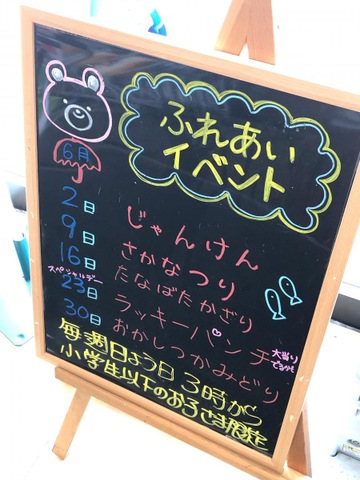 ふれあい
イベント
6月
2日 じゃんけん
9日 さかなつり
16日 たなばたかざり
スペシャルデー
23日 ラッキーパンチ 大当り でるかも
30日 おかしつかみどり
毎週日よう日 3時から
小学生以下のお子さま限定